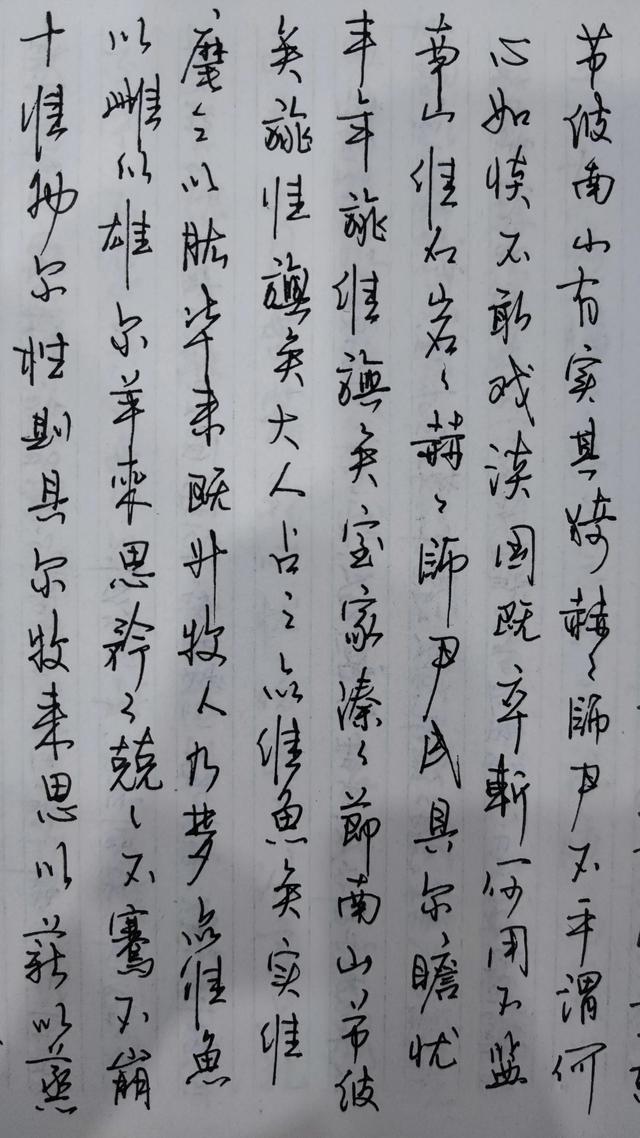 十惟物尔牲则具尔牧来思以薪以蒸
以雌以雄尔羊來思矜〻兢〻不騫不崩
麾之以肱毕来既升牧人乃梦众维魚
矣旐惟旟矣大人占之众维魚矣实维
丰年旐维旟矣室家溱〻節南山节彼
南山维石岩〻赫〻師尹民具尔瞻忧
心如惔不敢戏谈国既卒斬何用不监
节彼南山有实其猗赫〻師尹不平谓何